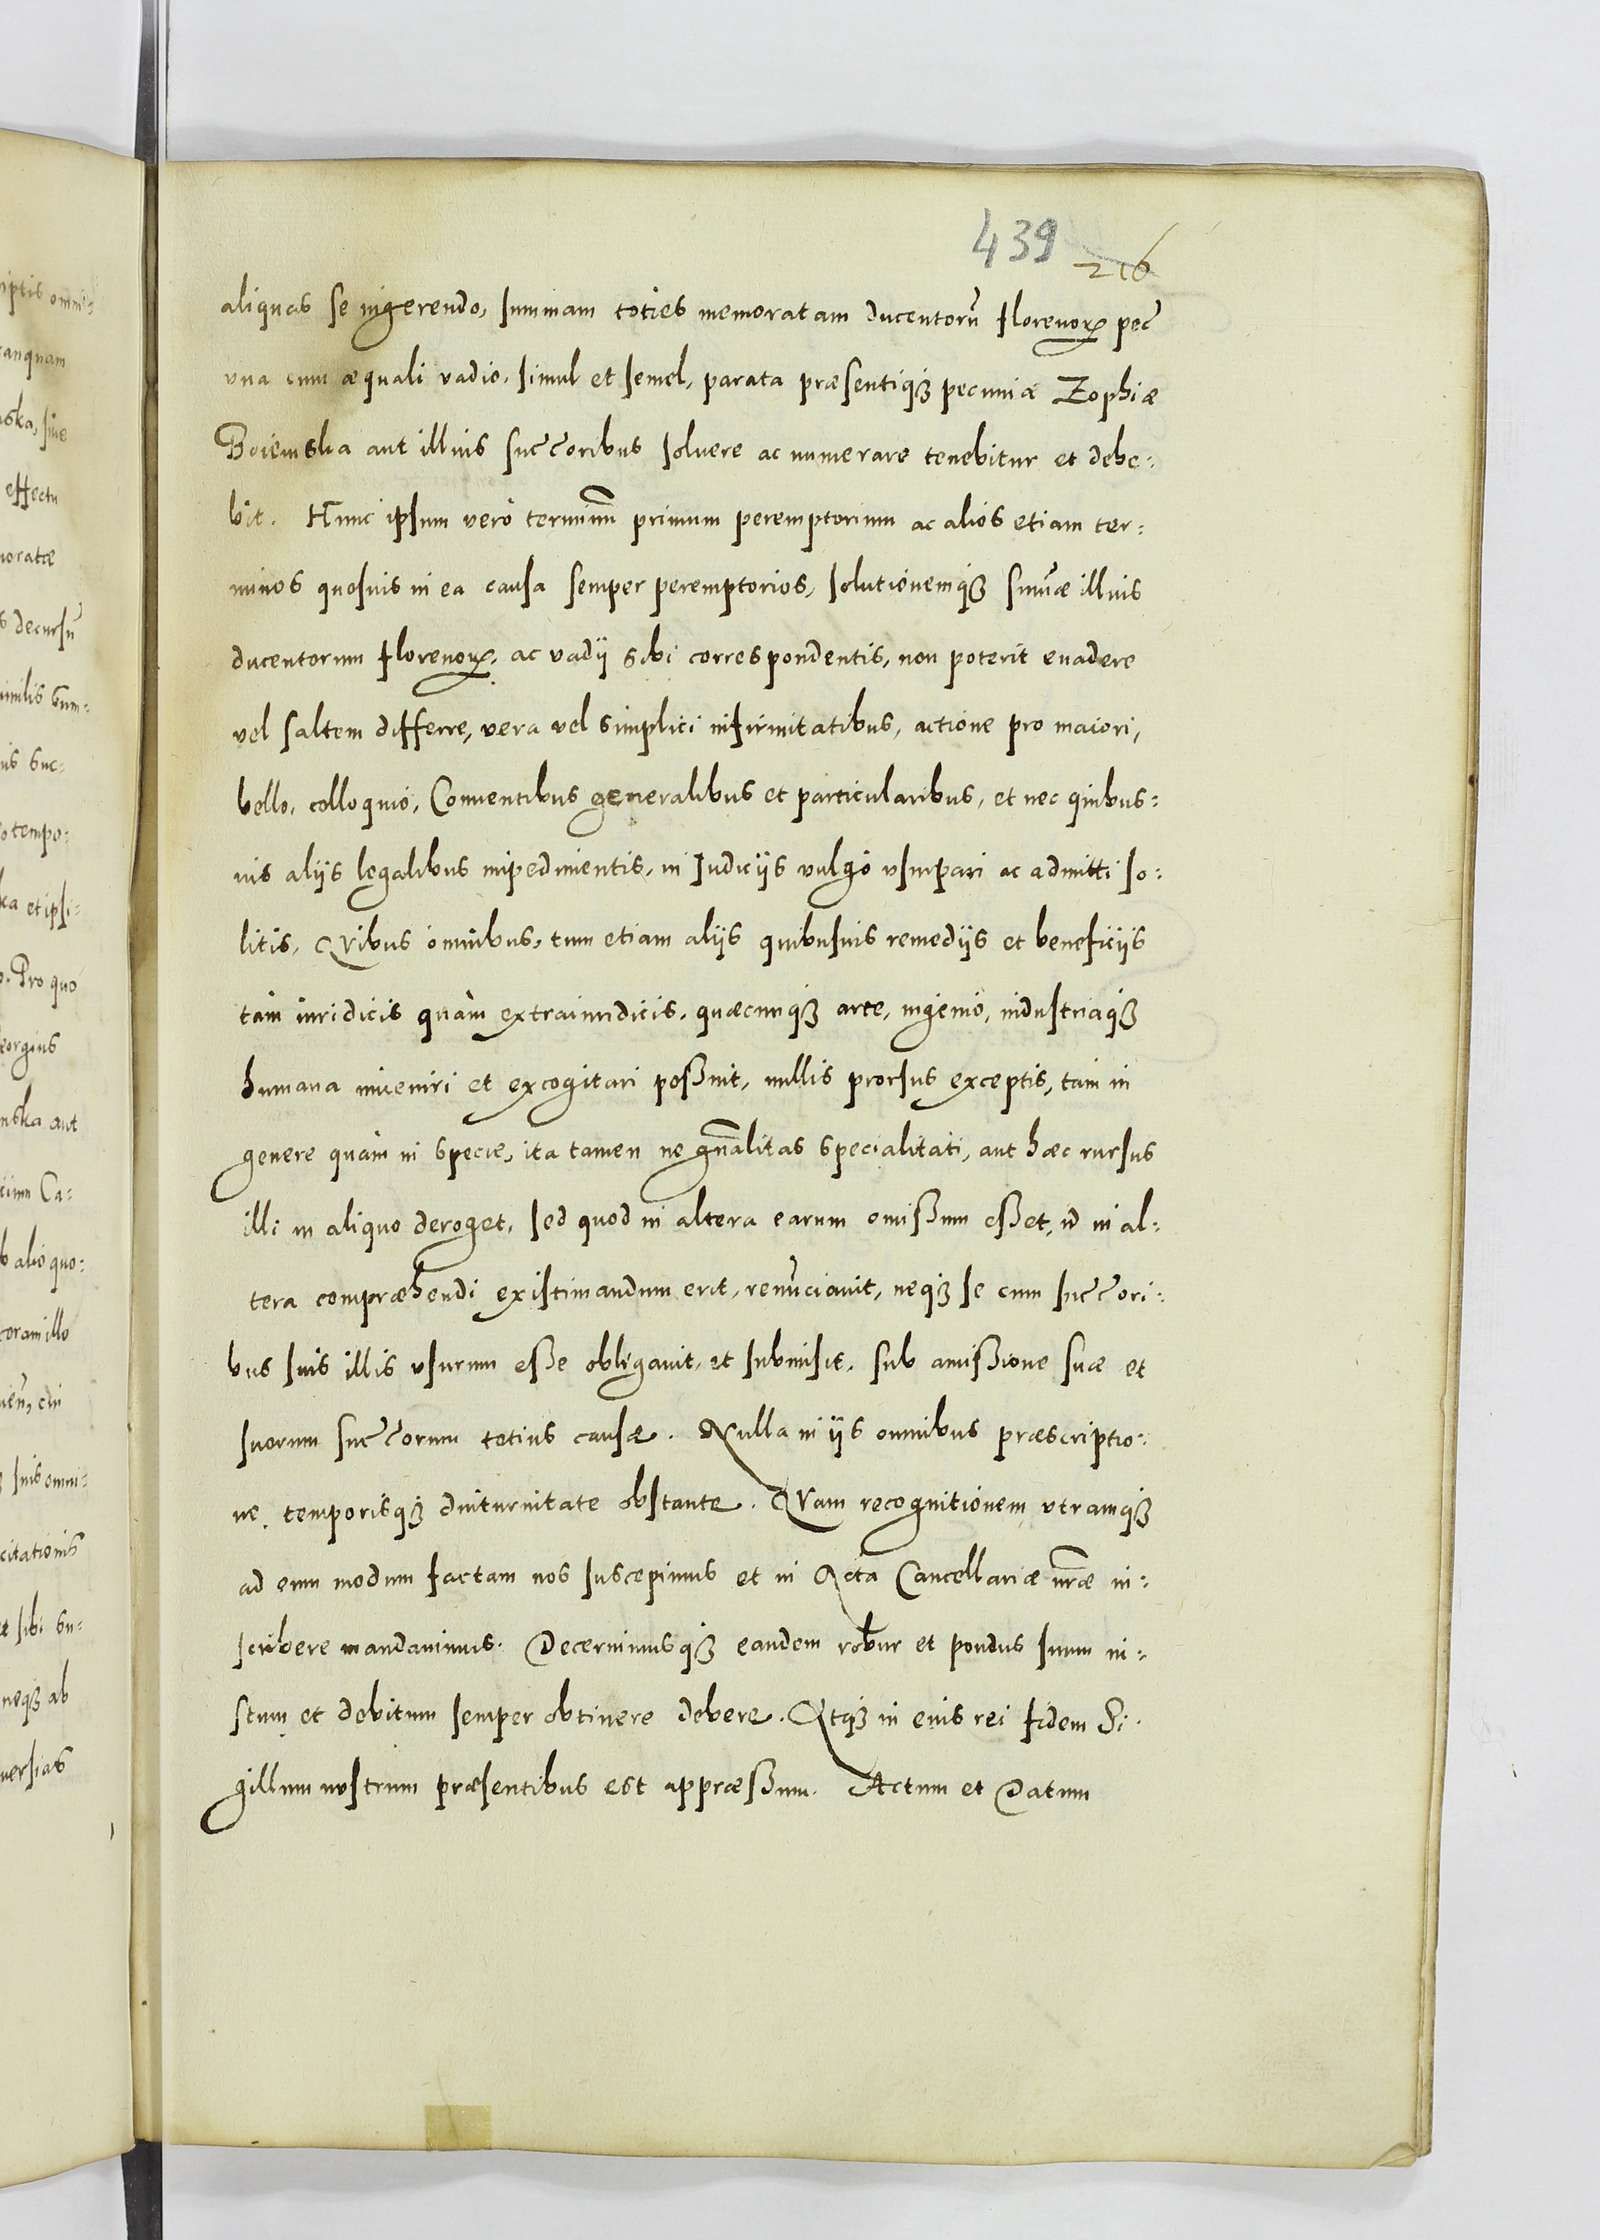 439 216
aliquas se ingerendo, summam toties memoratam ducentorũ florenoꝝ pec̃
vna cum æquali vadio, simul et semel, parata præsentiqꝫ pecunia Zophiæ
Boiemska aut illius succ̃oribus soluere ac numerare tenebitur et debe:
bit. Hunc ipsum verò terminũ primum peremptorium ac alios etiam ter:
minos quosuis in ea causa semper peremptorios, solutionemqꝫ sum̃æ illius
ducentorum florenoꝝ, ac vadij sibi correspondentis, non poterit euadere
vel saltem differre, vera vel simplici infirmitatibus, actione pro maiori,
bello, colloquió, Conuentibus generalibus et particularibus, et nec quibus:
uis alijs legalibus impedimentis, in Judicijs vulgò vsurpari ac admitti so:
litis, Qvibus omnibus, tum etiam alijs quibusuis remedijs et beneficijs
tàm iuridicis quàm extraiuridicis, quæcunqꝫ arte, ingenió, industriaqꝫ
humana inueniri et excogitari poßint, nullis prorsus exceptis, tàm in
genere quàm in specie, ita tamen ne gñalitas specialitati, aut hæc rursus
illi in aliquo deroget, sed quod in altera earum omißum eßet, id in al:
tera compræhendi existimandum erit, renũciauit, neqꝫ se cum succ̃ori:
bus suis illis vsurum eße obligauit, et submisit, sub amißione suæ et
suorum succ̃orum totius causæ. Nulla in ijs omnibus præscriptio:
ne, temporisqꝫ diuturnitate obstante. QVam recognitionem vtramqꝫ
ad eum modum factam nos suscepimus et in Acta Cancellariæ nr̃æ in:
scribere mandauimus. Decernimusqꝫ eandem robur et pondus suum iu:
stum et debitum semper obtinere debere. Atqꝫ in eius rei fidem Si:
gillum nostrum præsentibus est appræßum. Actum et Datum